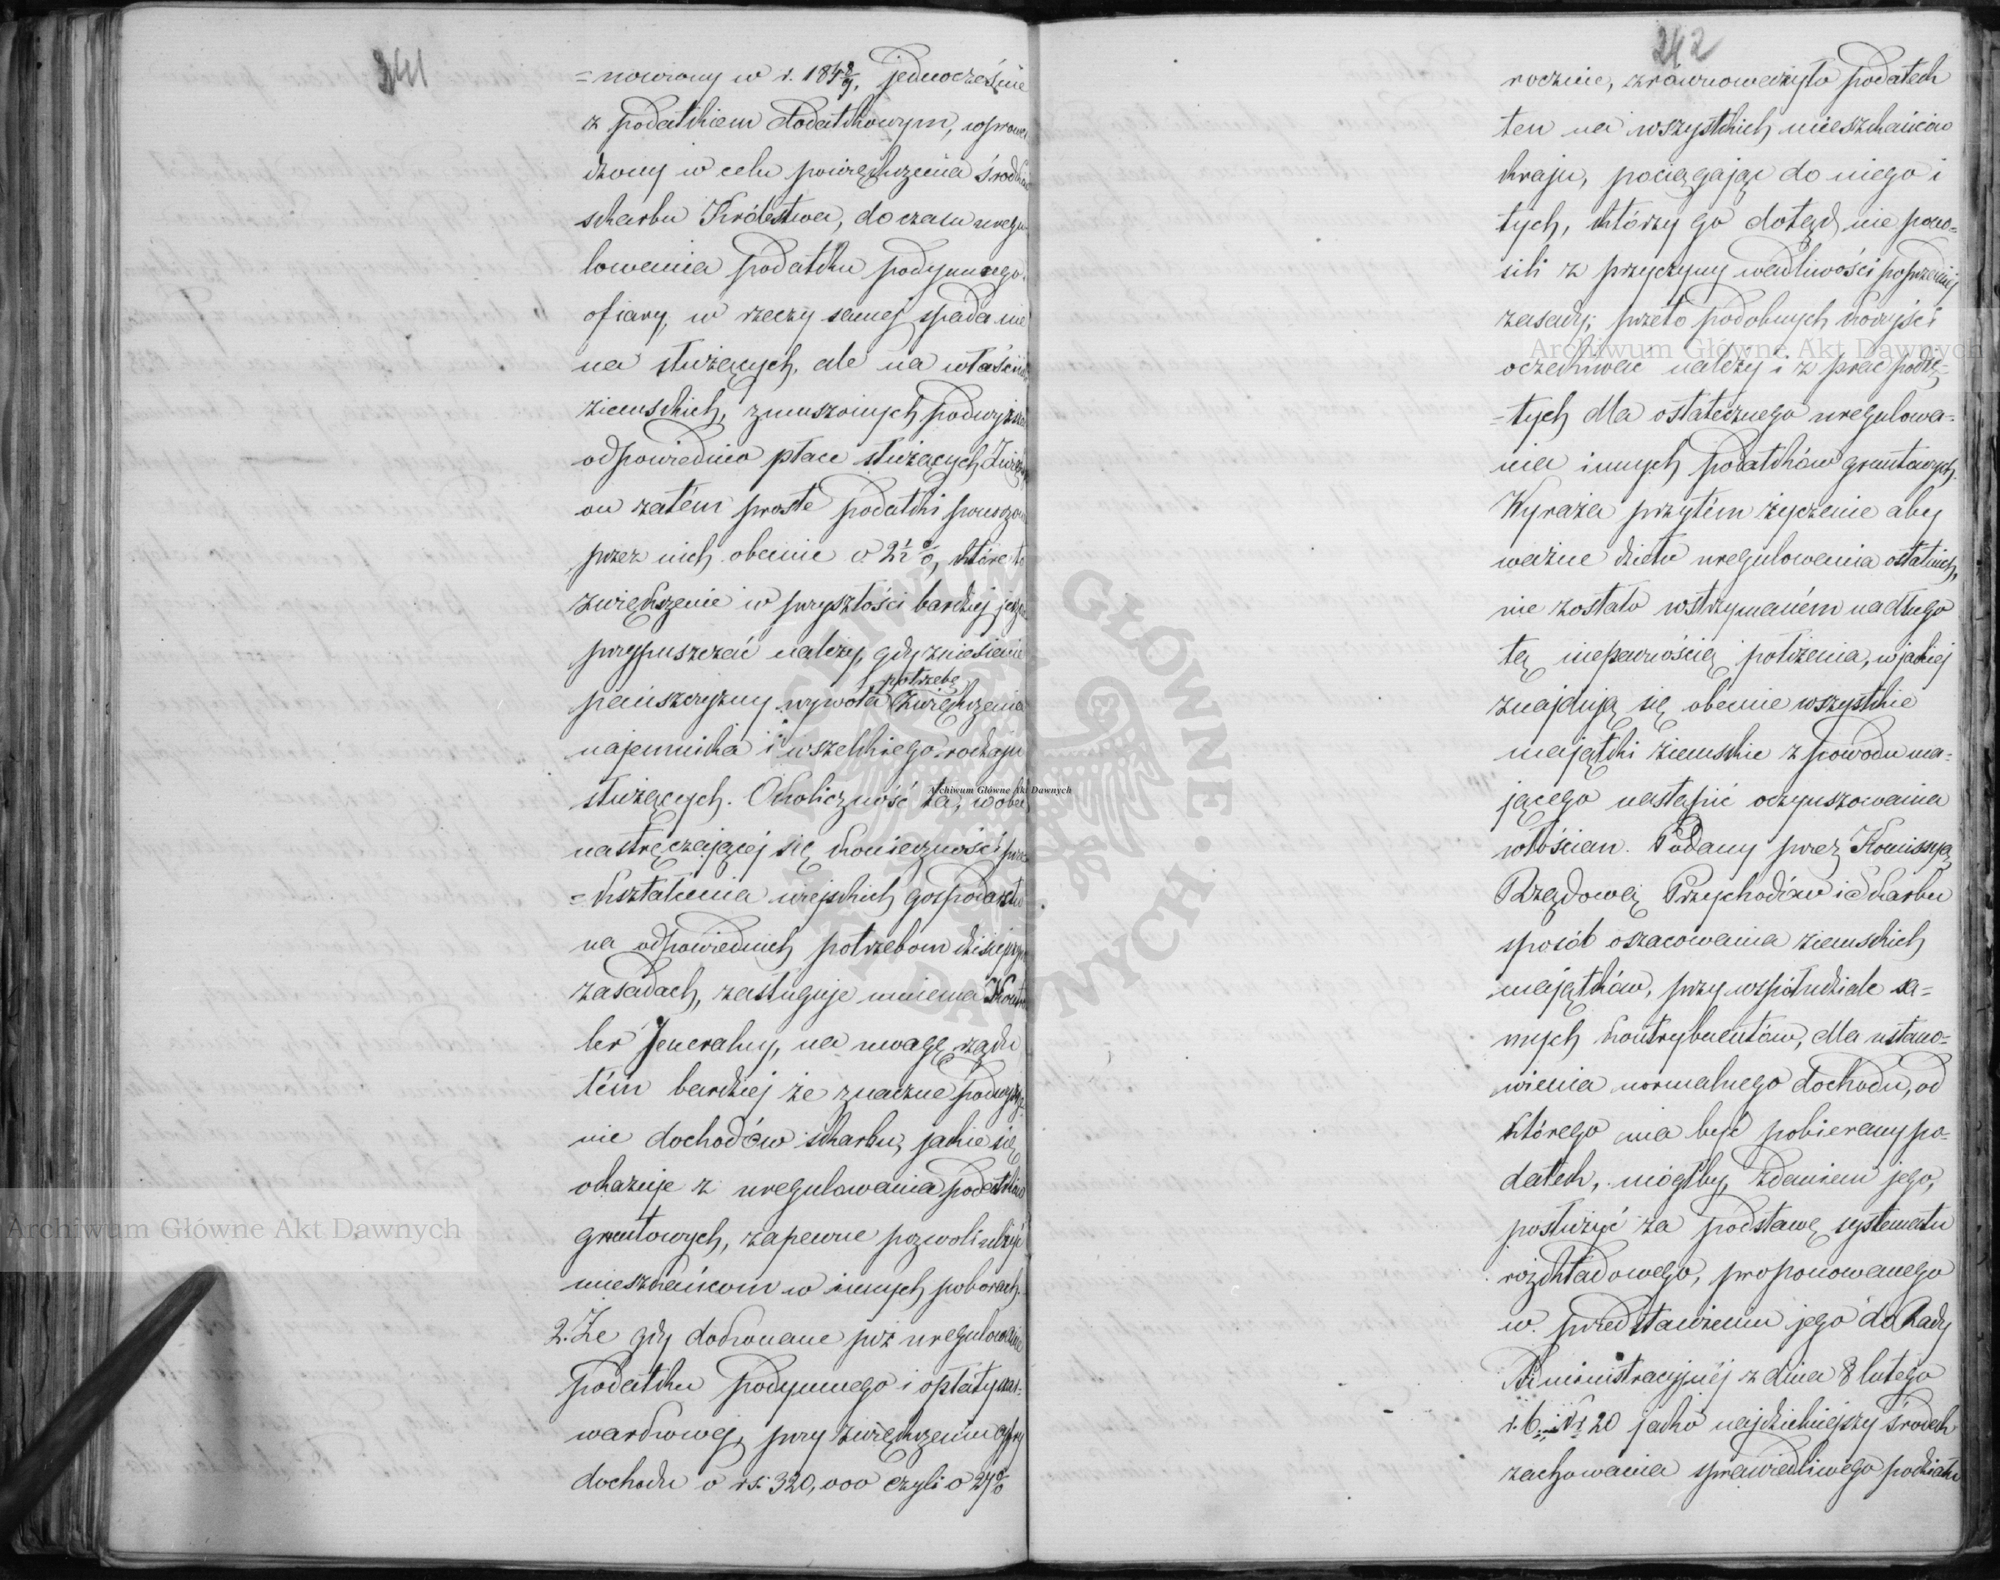 241
=nowiony w r. 184 8/9, jednocześnie
z podatkiem dodatkowym, wprowa
dzony w celu powiększenia środków
skarbu Królestwa, do czasu uregu
lowania podatku podymnego
ofiary, w rzeczy samej spada nie
na służących, ale na właścicieli
ziemskich, zmuszonych podwyższać
odpowiednio płace służących. Zwiększa
on zatém proste podatki ponoszone
przez nich obecnie o 2½ %, które to
zwiększenie w przyszłości bardziej jeszcze
przypuszczać należy, gdy zniesienie
potrzebę
pańszczyzny wywoła zwiększenia
najemnika i wszelkiego rodzaju
służących. Okoliczność ta, wobec
nastręczającej się konieczności prze
=kształcenia wiejskich gospodarstw
na odpowiednich potrzebom dzisiejszym
zasadach, zasługuje mniema Kontro
ler Jeneralny, na uwagę rządu
tém bardziej że znaczne podwyższe
nie dochodów skarbu, jakie się
okazuje z uregulowania podatków
gruntowych, zapewne pozwoli ulżyć
mieszkańcom w innych poborach.
2. Że gdy dokonane już uregulowanie
podatku podymnego i opłaty szar-
warkowej, przy zwiększeniu ogółu
dochodu o rs. 320,000 czyli o 27%
242
rocznie, zrównoważyło podatek
ten na wszystkich mieszkańców
kraju, pociągając do niego i
tych, którzy go dotąd nie pono-
sili z przyczyny wadliwości poprzedniej
zasady; przeto podobnych korzyści
oczekiwać należy i z prac podję=
=tych dla ostatecznego uregulowa-
nia innych podatków gruntowych.
Wyraża przytém życzenie aby
ważne dzieło uregulowania ostatnich,
nie zostało wstrzymaném na długo
tą niepewnością położenia, w jakiej
znajdują się obecnie wszystkie
majątki ziemskie z powodu ma-
jącego nastąpić oczynszowania
włościan. Podany przez Komissją
Rządową Przychodów i Skarbu
sposób oszacowania ziemskich
majątków, przy współudziale sa=
mych kontrybuentów, dla ustano-
wienia normalnego dochodu, od
którego ma być pobierany po-
datek, mógłby, zdaniem jego,
posłużyć za podstawę systematu
rozkładowego, proponowanego
w przedstawieniu jego do Rady
Administracyjnej z dnia 8 lutego
r. b. Nr 20 jako najdzielniejszy środek
zachowania sprawiedliwego podziału
Archiwum Główne Akt Dawnych
Archiwum Główne Akt Dawnych
Archiwum Główne Akt Dawnych
ARCHIWUM GŁÓWNE AKT DAWNYCH